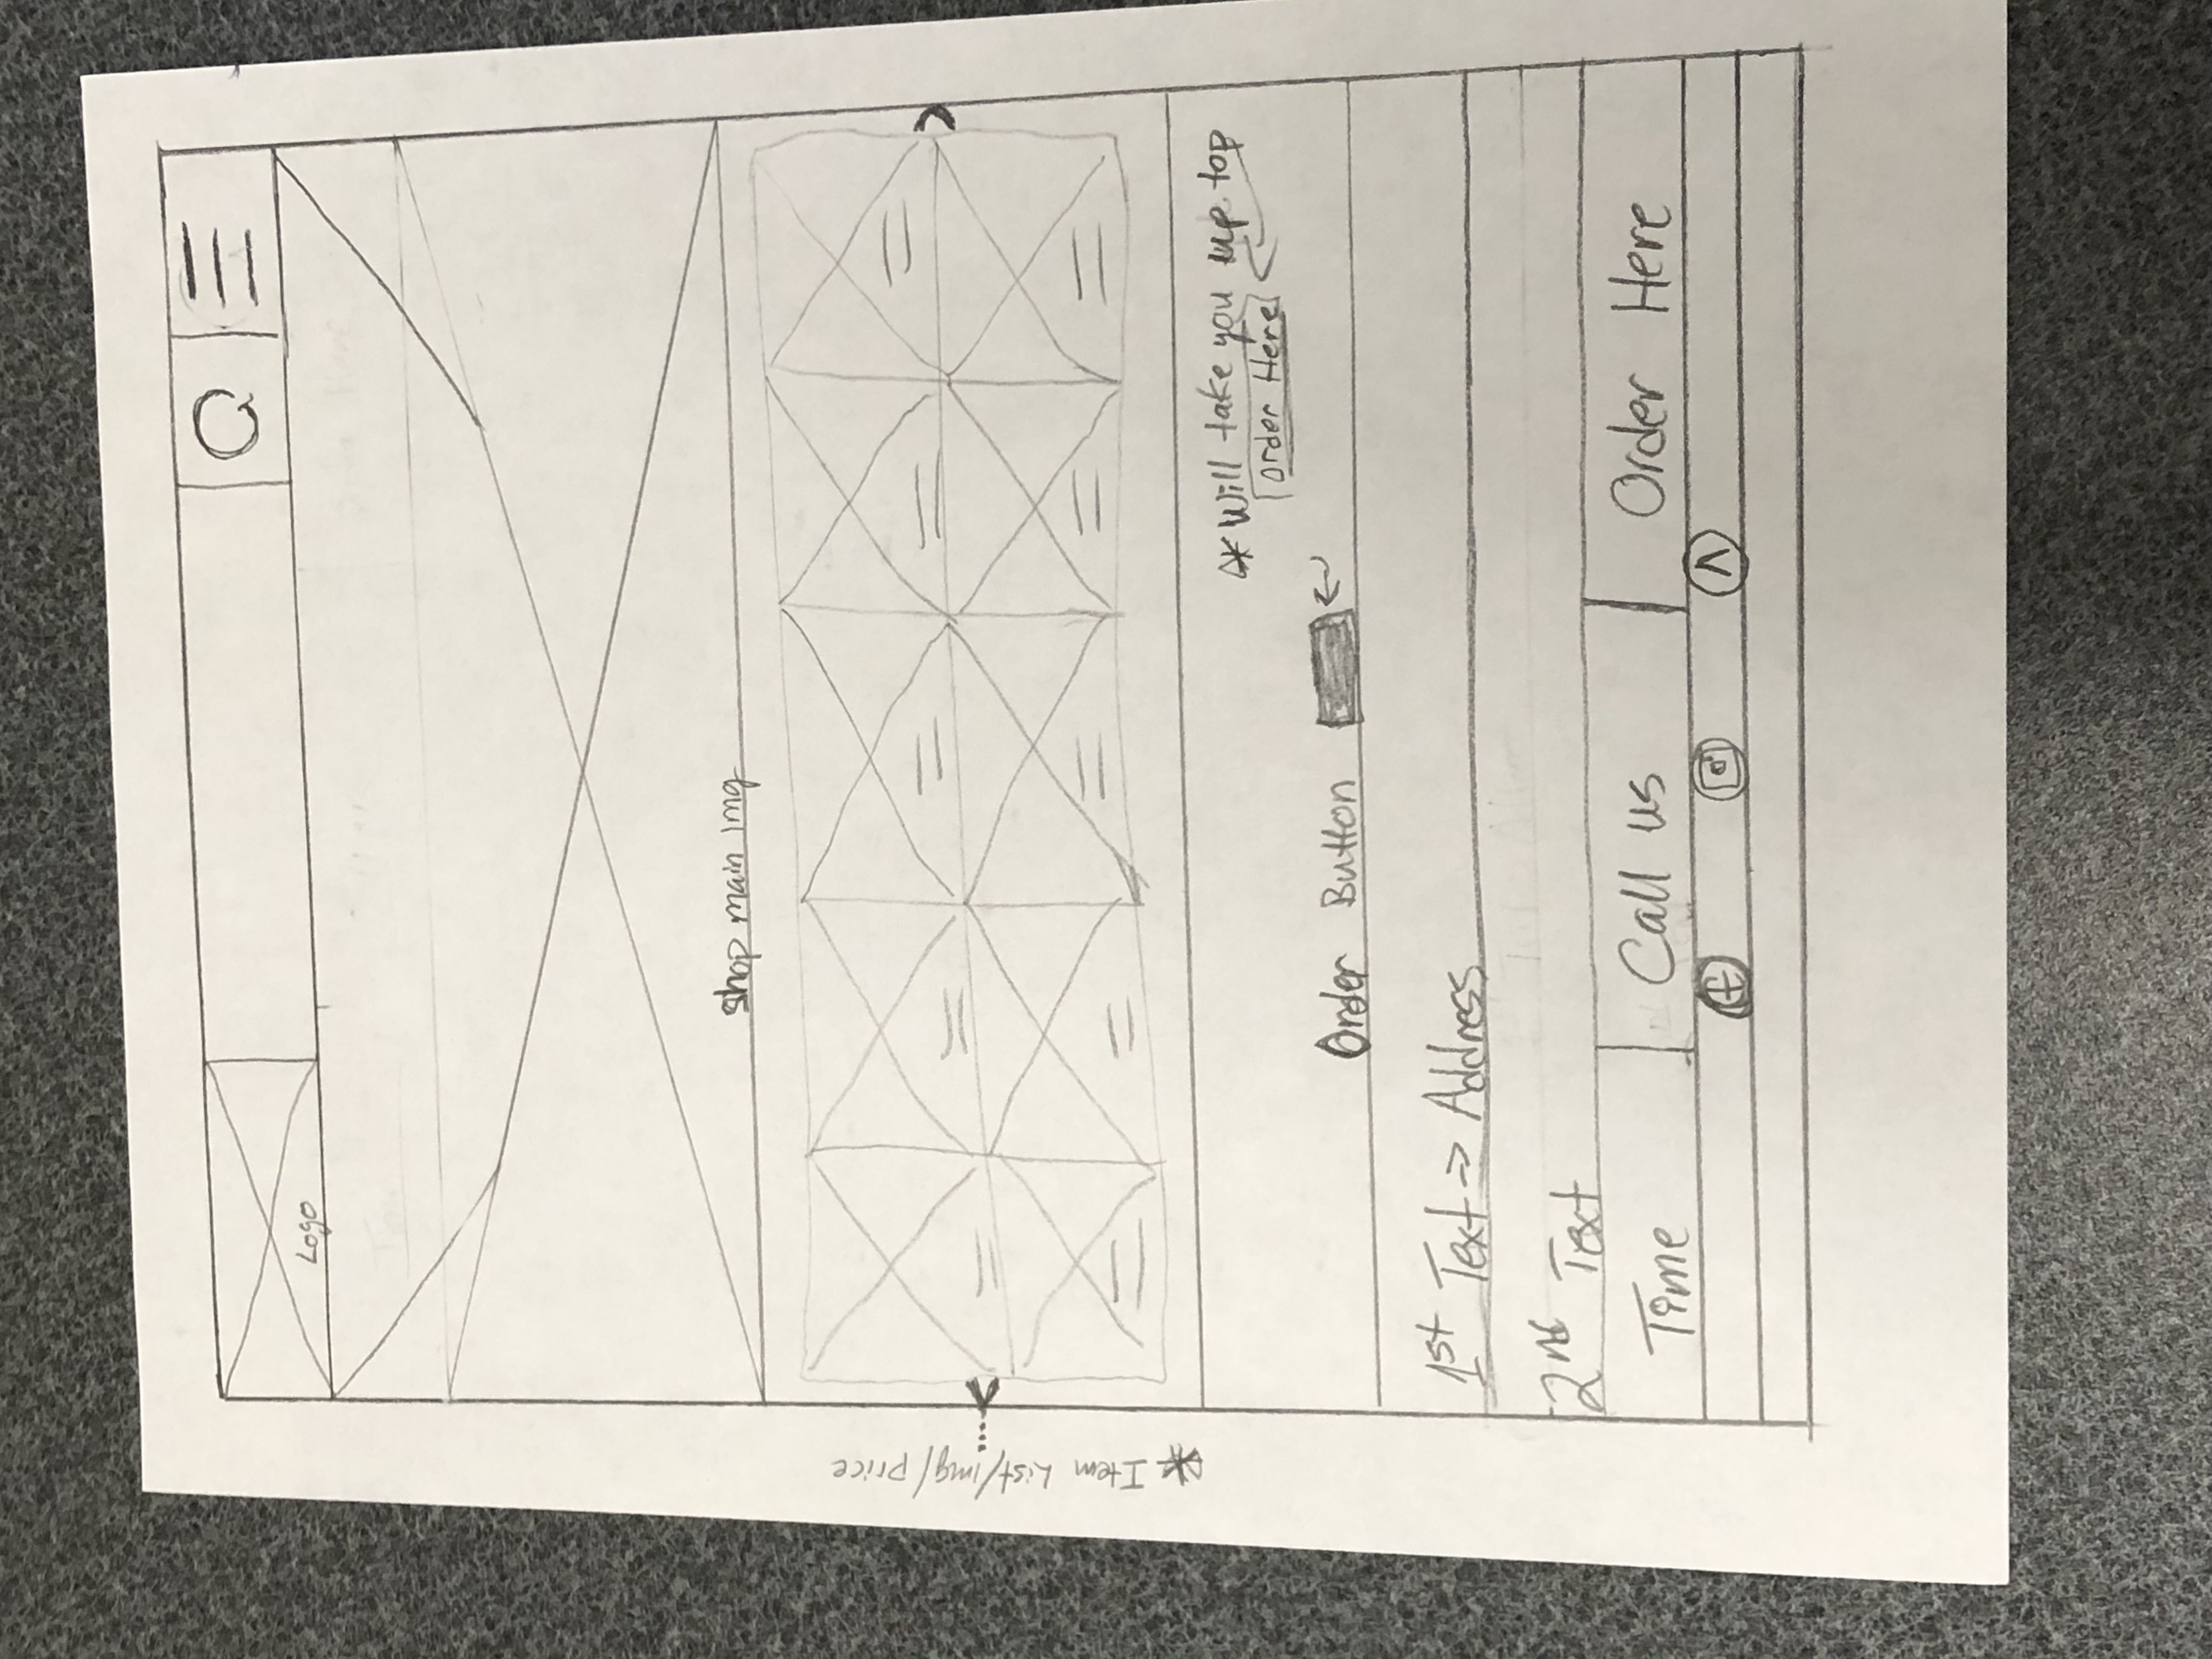 Logo
shop main img
* Item List/img/price
* Will take you up top
Order Here
Order Button
1st Text => Address
2nd Text
Time
Call us
Order Here